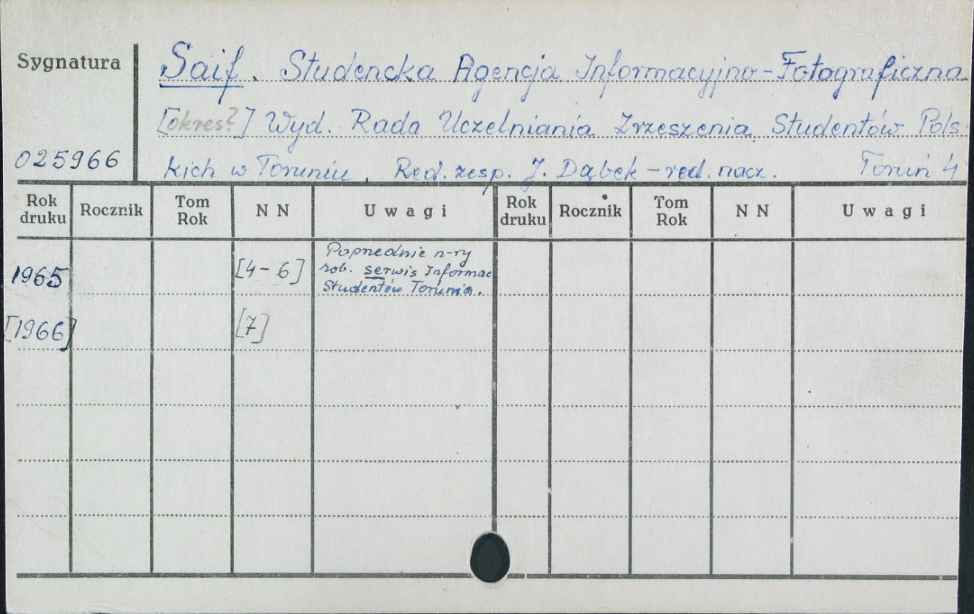 Sygnatura
Saif. Studencka Agencja Informacyjno-Fotograficzna
[okres?] Wyd. Rada Uczelniania Zrzeszenia Studentów Pols
025966
kich w Toruniu. Red. zesp. J. Dąbek - red. nacz. Toruń 4
Rok druku Rocznik Tom Rok N N Uwagi Rok druku Rocznik Tom Rok N N Uwagi
1965 [4-6] Poprzednie n-ry
zob. serwis Informac
Studentów Torunia.
[1966] [7]